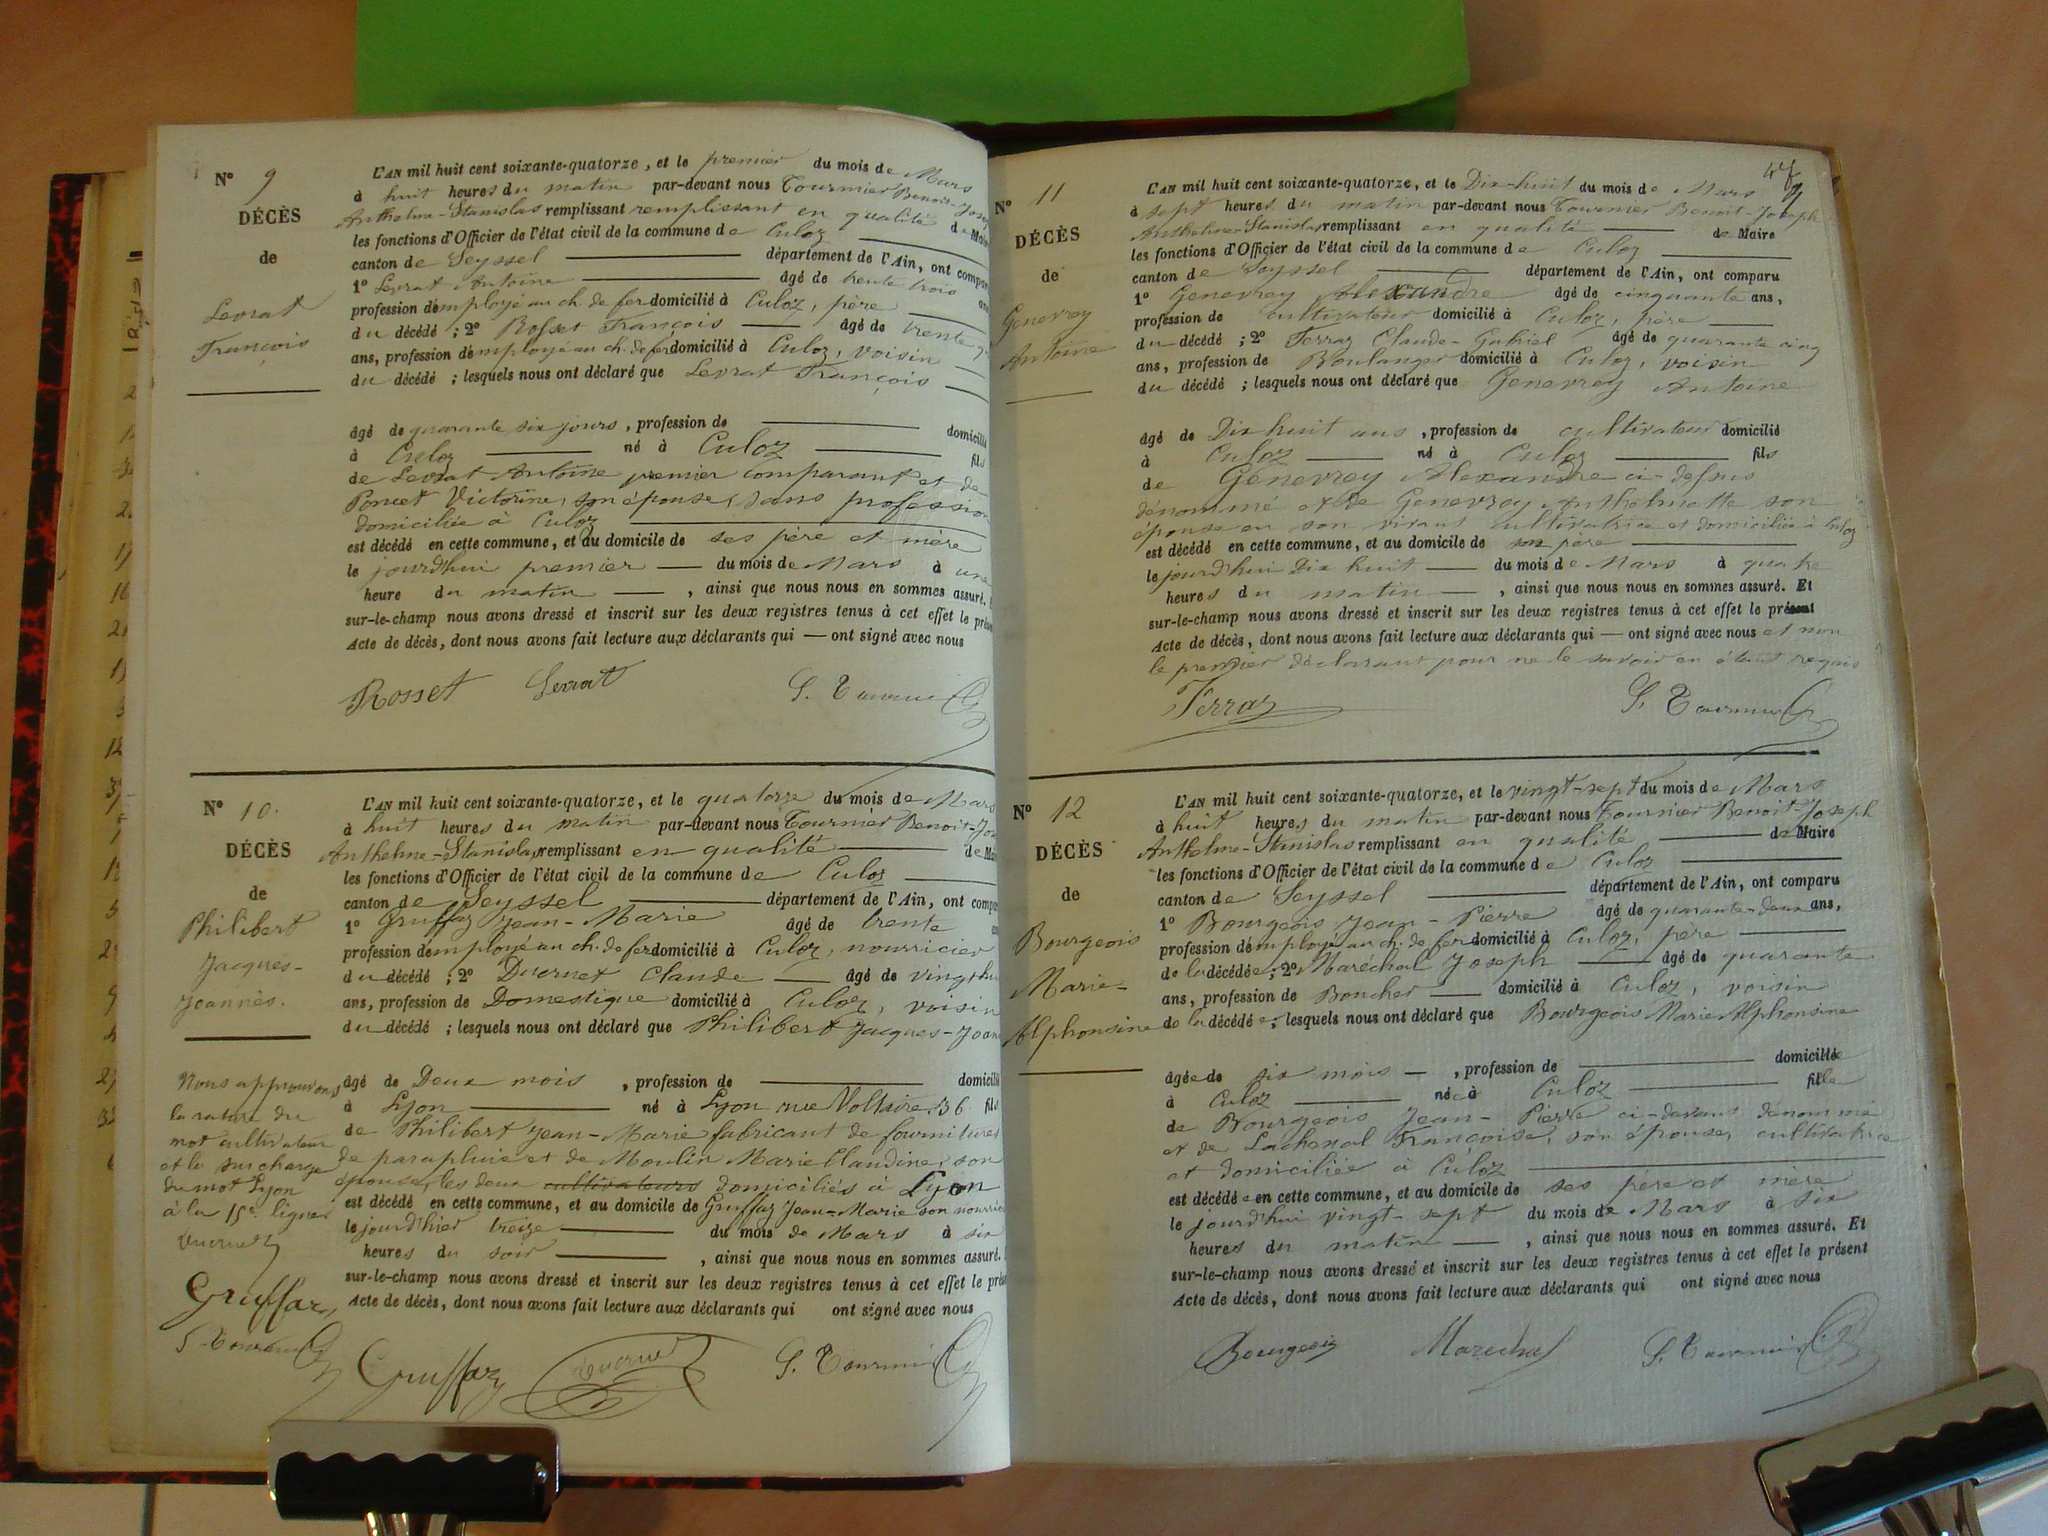 N° 9
DÉCÈS
de
Levrat
François
L'AN mil huit cent soixante-quatorze, et le premier du mois de Mars
à huit heures du matin par-devant nous Tournier Benoit-Josep
Anthelme-Stanislas remplissant remplissant en qualité de Maire
les fonctions d'Officier de l'état civil de la commune de Culoz
canton de Seyssel département de l'Ain, ont compar
1° Levrat Antoine âgé de trente trois ans
profession d'employé au ch. de fer domicilié à Culoz, père
du décédé ; 2° Rosset François âgé de trente
ans, profession d'employé au ch. de fer domicilié à Culoz, voisin
du décédé ; lesquels nous ont déclaré que Levrat François
âgé de quarante six jours, profession de domicilié
à Culoz né à Culoz fils
de Levrat Antoine premier comparant et de
Poncet Victorine, son épouse, sans profession
domiciliée à Culoz
est décédé en cette commune, et au domicile de ses père et mère
le jourd'hui premier du mois de Mars à une
heure du matin , ainsi que nous nous en sommes assuré.
sur-le-champ nous avons dressé et inscrit sur les deux registres tenus à cet effet le prése
Acte de décès, dont nous avons fait lecture aux déclarants qui — ont signé avec nous
Rosset Levrat S. Tournier
N° 10.
DÉCÈS
de
Philibert
Jacques-
Joannès.
L'AN mil huit cent soixante-quatorze, et le quatorze du mois de Mars
à huit heures du matin par-devant nous Tournier Benoit-Jos
Anthelme-Stanislas remplissant en qualité de Mai
les fonctions d'Officier de l'état civil de la commune de Culoz
canton de Seyssel département de l'Ain, ont compa
1° Gruffaz Jean-Marie âgé de trente
profession d'employé au ch. de fer domicilié à Culoz, nourricier
du décédé ; 2° Ducruet Claude âgé de vingt hu
ans, profession de Domestique domicilié à Culoz, voisin
du décédé ; lesquels nous ont déclaré que Philibert Jacques-Joan
âgé de Deux mois , profession de domicilié
à Lyon né à Lyon rue Voltaire, 36 fils
de Philibert Jean-Marie fabricant de fournitures
de parapluie et de Moulin Marie Claudine, son
épouse, les deux cultivateurs domiciliés à Lyon
est décédé en cette commune, et au domicile de Gruffaz Jean-Marie son nourric
le jourd'hier treize du mois de Mars à six
heures du soir , ainsi que nous nous en sommes assuré.
sur-le-champ nous avons dressé et inscrit sur les deux registres tenus à cet effet le prése
Acte de décès, dont nous avons fait lecture aux déclarants qui ont signé avec nous
Nous approuvons
la rature du
mot cultivateurs
et la surcharge
du mot Lyon
à la 15e ligne
Ducruet
Gruffaz
S. Tournier
Gruffaz Ducruet S. Tournier
47
N° 11
DÉCÈS
de
Genevrey
Antoine
L'AN mil huit cent soixante-quatorze, et le Dix-huit du mois de Mars
à sept heures du matin par-devant nous Tournier Benoit-Joseph
Anthelme-Stanislas remplissant en qualité de Maire
les fonctions d'Officier de l'état civil de la commune de Culoz
canton de Seyssel département de l'Ain, ont comparu
1° Genevrey Alexandre âgé de cinquante ans,
profession de cultivateur domicilié à Culoz, père
du décédé ; 2° Ferraz Claude-Gabriel âgé de quarante cinq
ans, profession de Boulanger domicilié à Culoz, voisin
du décédé ; lesquels nous ont déclaré que Genevrey Antoine
âgé de Dix huit ans , profession de cultivateur domicilié
à Culoz né à Culoz fils
de Genevrey Alexandre ci-dessus
dénommé et de Genevrey Anthelmette son
épouse en son vivant cultivatrice et domiciliée à Culoz
est décédé en cette commune, et au domicile de son père
le jourd'hui Dix huit du mois de Mars à quatre
heures du matin , ainsi que nous nous en sommes assuré. Et
sur-le-champ nous avons dressé et inscrit sur les deux registres tenus à cet effet le présent
Acte de décès, dont nous avons fait lecture aux déclarants qui — ont signé avec nous et non
le premier déclarant pour ne le savoir en étant requis
Ferraz S. Tournier
N° 12
DÉCÈS
de
Bourgeois
Marie-
Alphonsine
L'AN mil huit cent soixante-quatorze, et le vingt-sept du mois de Mars
à huit heures du matin par-devant nous Tournier Benoit-Joseph
Anthelme-Stanislas remplissant en qualité de Maire
les fonctions d'Officier de l'état civil de la commune de Culoz
canton de Seyssel département de l'Ain, ont comparu
1° Bourgeois Jean-Pierre âgé de quarante-deux ans,
profession d'employé au ch. de fer domicilié à Culoz, père
de la décédée ; 2° Maréchal Joseph âgé de quarante
ans, profession de Boucher domicilié à Culoz, voisin
de la décédée ; lesquels nous ont déclaré que Bourgeois Marie Alphonsine
âgée de six mois , profession de domiciliée
à Culoz née à Culoz fille
de Bourgeois Jean-Pierre ci-devant dénommé
et de Lachenal Françoise, son épouse, cultivatrice
et domiciliée à Culoz
est décédée en cette commune, et au domicile de ses père et mère
le jourd'hui vingt-sept du mois de Mars à six
heures du matin , ainsi que nous nous en sommes assuré. Et
sur-le-champ nous avons dressé et inscrit sur les deux registres tenus à cet effet le présent
Acte de décès, dont nous avons fait lecture aux déclarants qui ont signé avec nous
Bourgeois Marechal S. Tournier